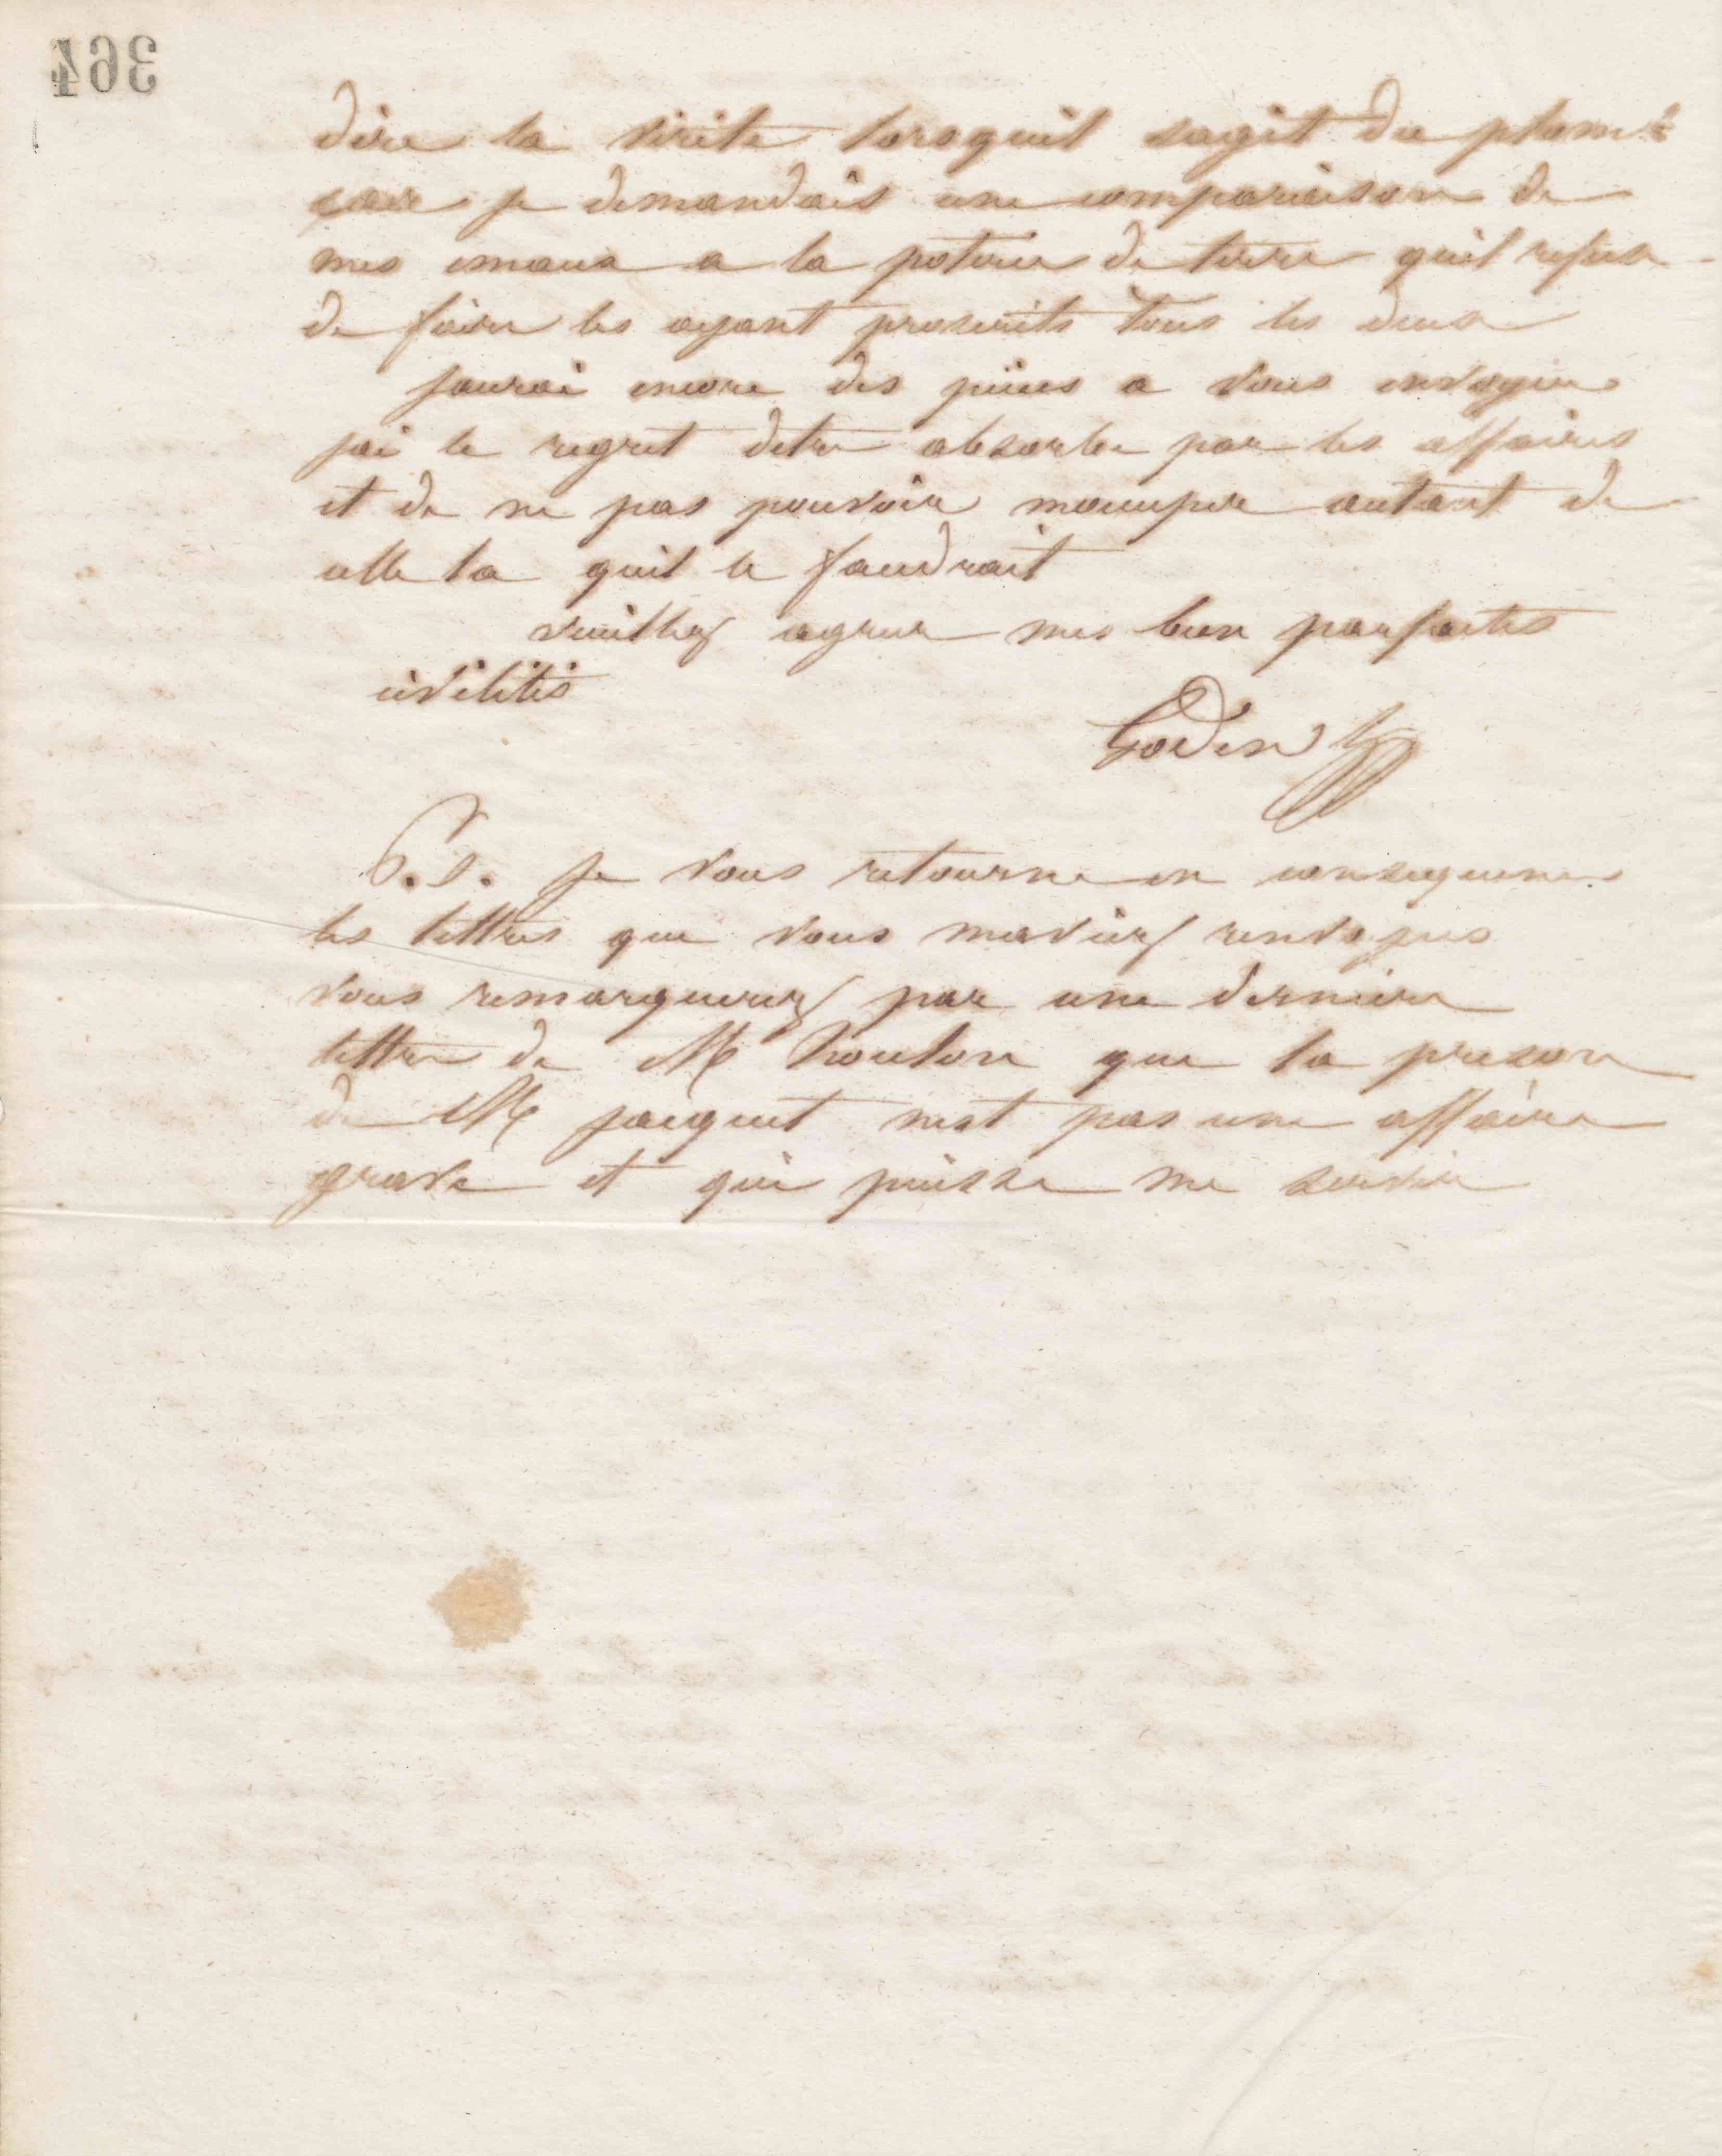 364
dire la verite lorsquil sagit du plomb
car je demandais une comparaison de
mes emaux a la poterie de terre quil refuse
de faire les ayant proscrits tous les deux
jaurai encore des pieces a vous envoyer
jai le regret detre absorbe par les affaires
et de ne pas pouvoir moccuper autant de
celle la quil le faudrait
veuillez agreer mes bien parfaites
civilités
Godin
P.S. je vous retourne en consequence
les lettres que vous maviez renvoyees
vous remarquerez par une derniere
lettre de M que la prison
de M jacquet nest pas une affaire
grave et qui puisse me servir